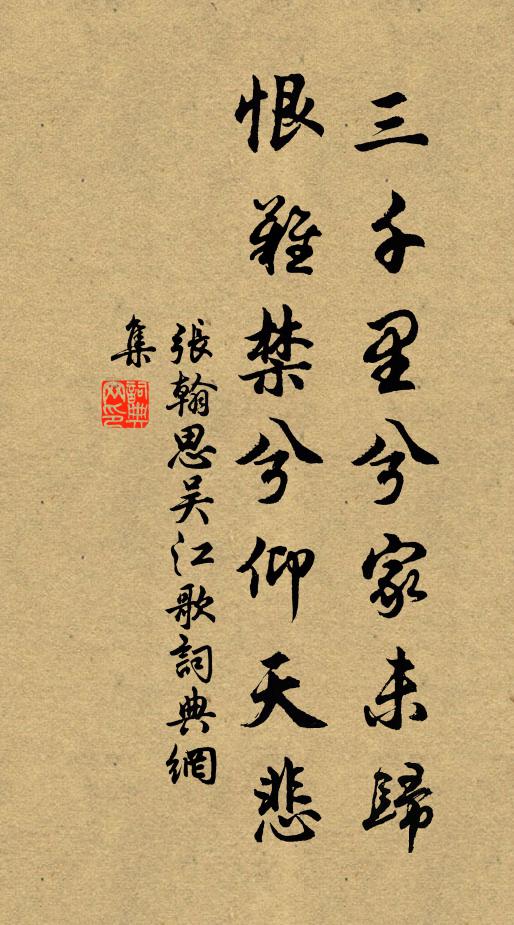 三千里兮家未歸
恨難禁兮仰天悲
張翰思吳江歌詞典網
集
詞典網印